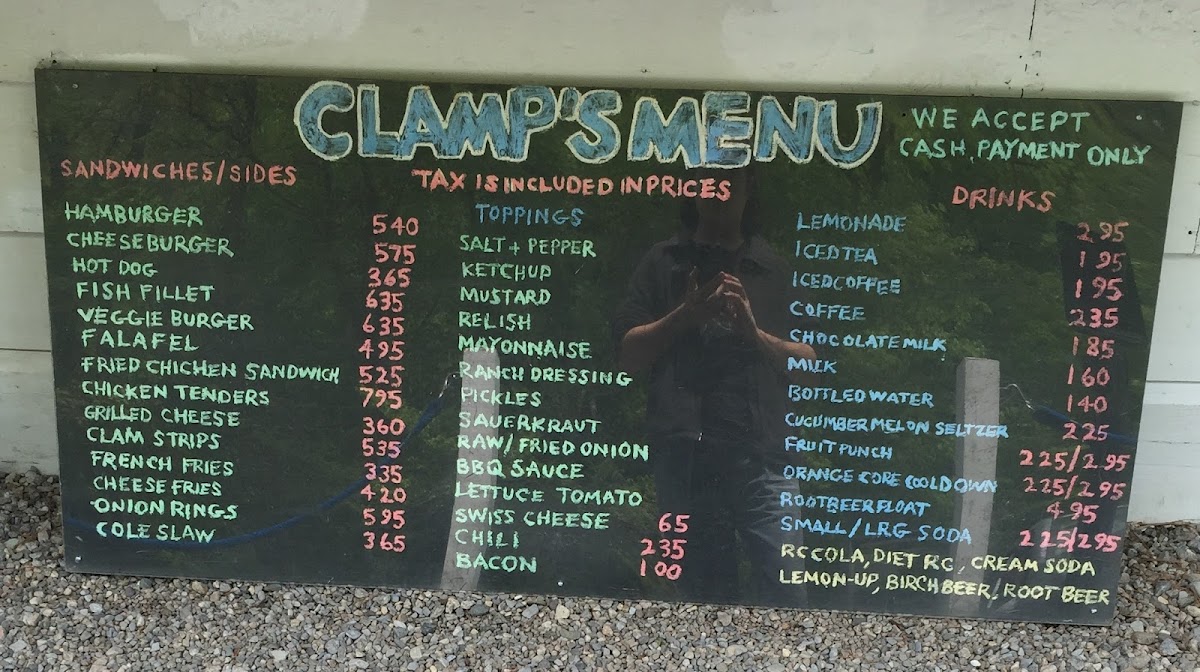 CLAMP'S MENU
WE ACCEPT
CASH PAYMENT ONLY
TAX IS INCLUDED IN PRICES
SANDWICHES/SIDES
HAMBURGER 540
CHEESEBURGER 575
HOT DOG 365
FISH FILLET 635
VEGGIE BURGER 635
FALAFEL 495
FRIED CHICHEN SANDWICH 525
CHICKEN TENDERS 795
GRILLED CHEESE 360
CLAM STRIPS 535
FRENCH FRIES 335
CHEESE FRIES 420
ONION RINGS 595
COLE SLAW 365
TOPPINGS
SALT + PEPPER
KETCHUP
MUSTARD
RELISH
MAYONNAISE
RANCH DRESSING
PICKLES
SAUERKRAUT
RAW/FRIED ONION
BBQ SAUCE
LETTUCE TOMATO
SWISS CHEESE 65
CHILI 235
BACON 100
DRINKS
LEMONADE 295
ICED TEA 195
ICED COFFEE 195
COFFEE 235
CHOCOLATE MILK 185
MILK 160
BOTTLED WATER 140
CUCUMBER MELON SELTZER 225
FRUIT PUNCH 225/295
ORANGE CORE COOLDOWN 225/295
ROOTBEER FLOAT 495
SMALL/LRG SODA 225/295
RC COLA, DIET RC, CREAM SODA
LEMON-UP, BIRCH BEER, ROOT BEER